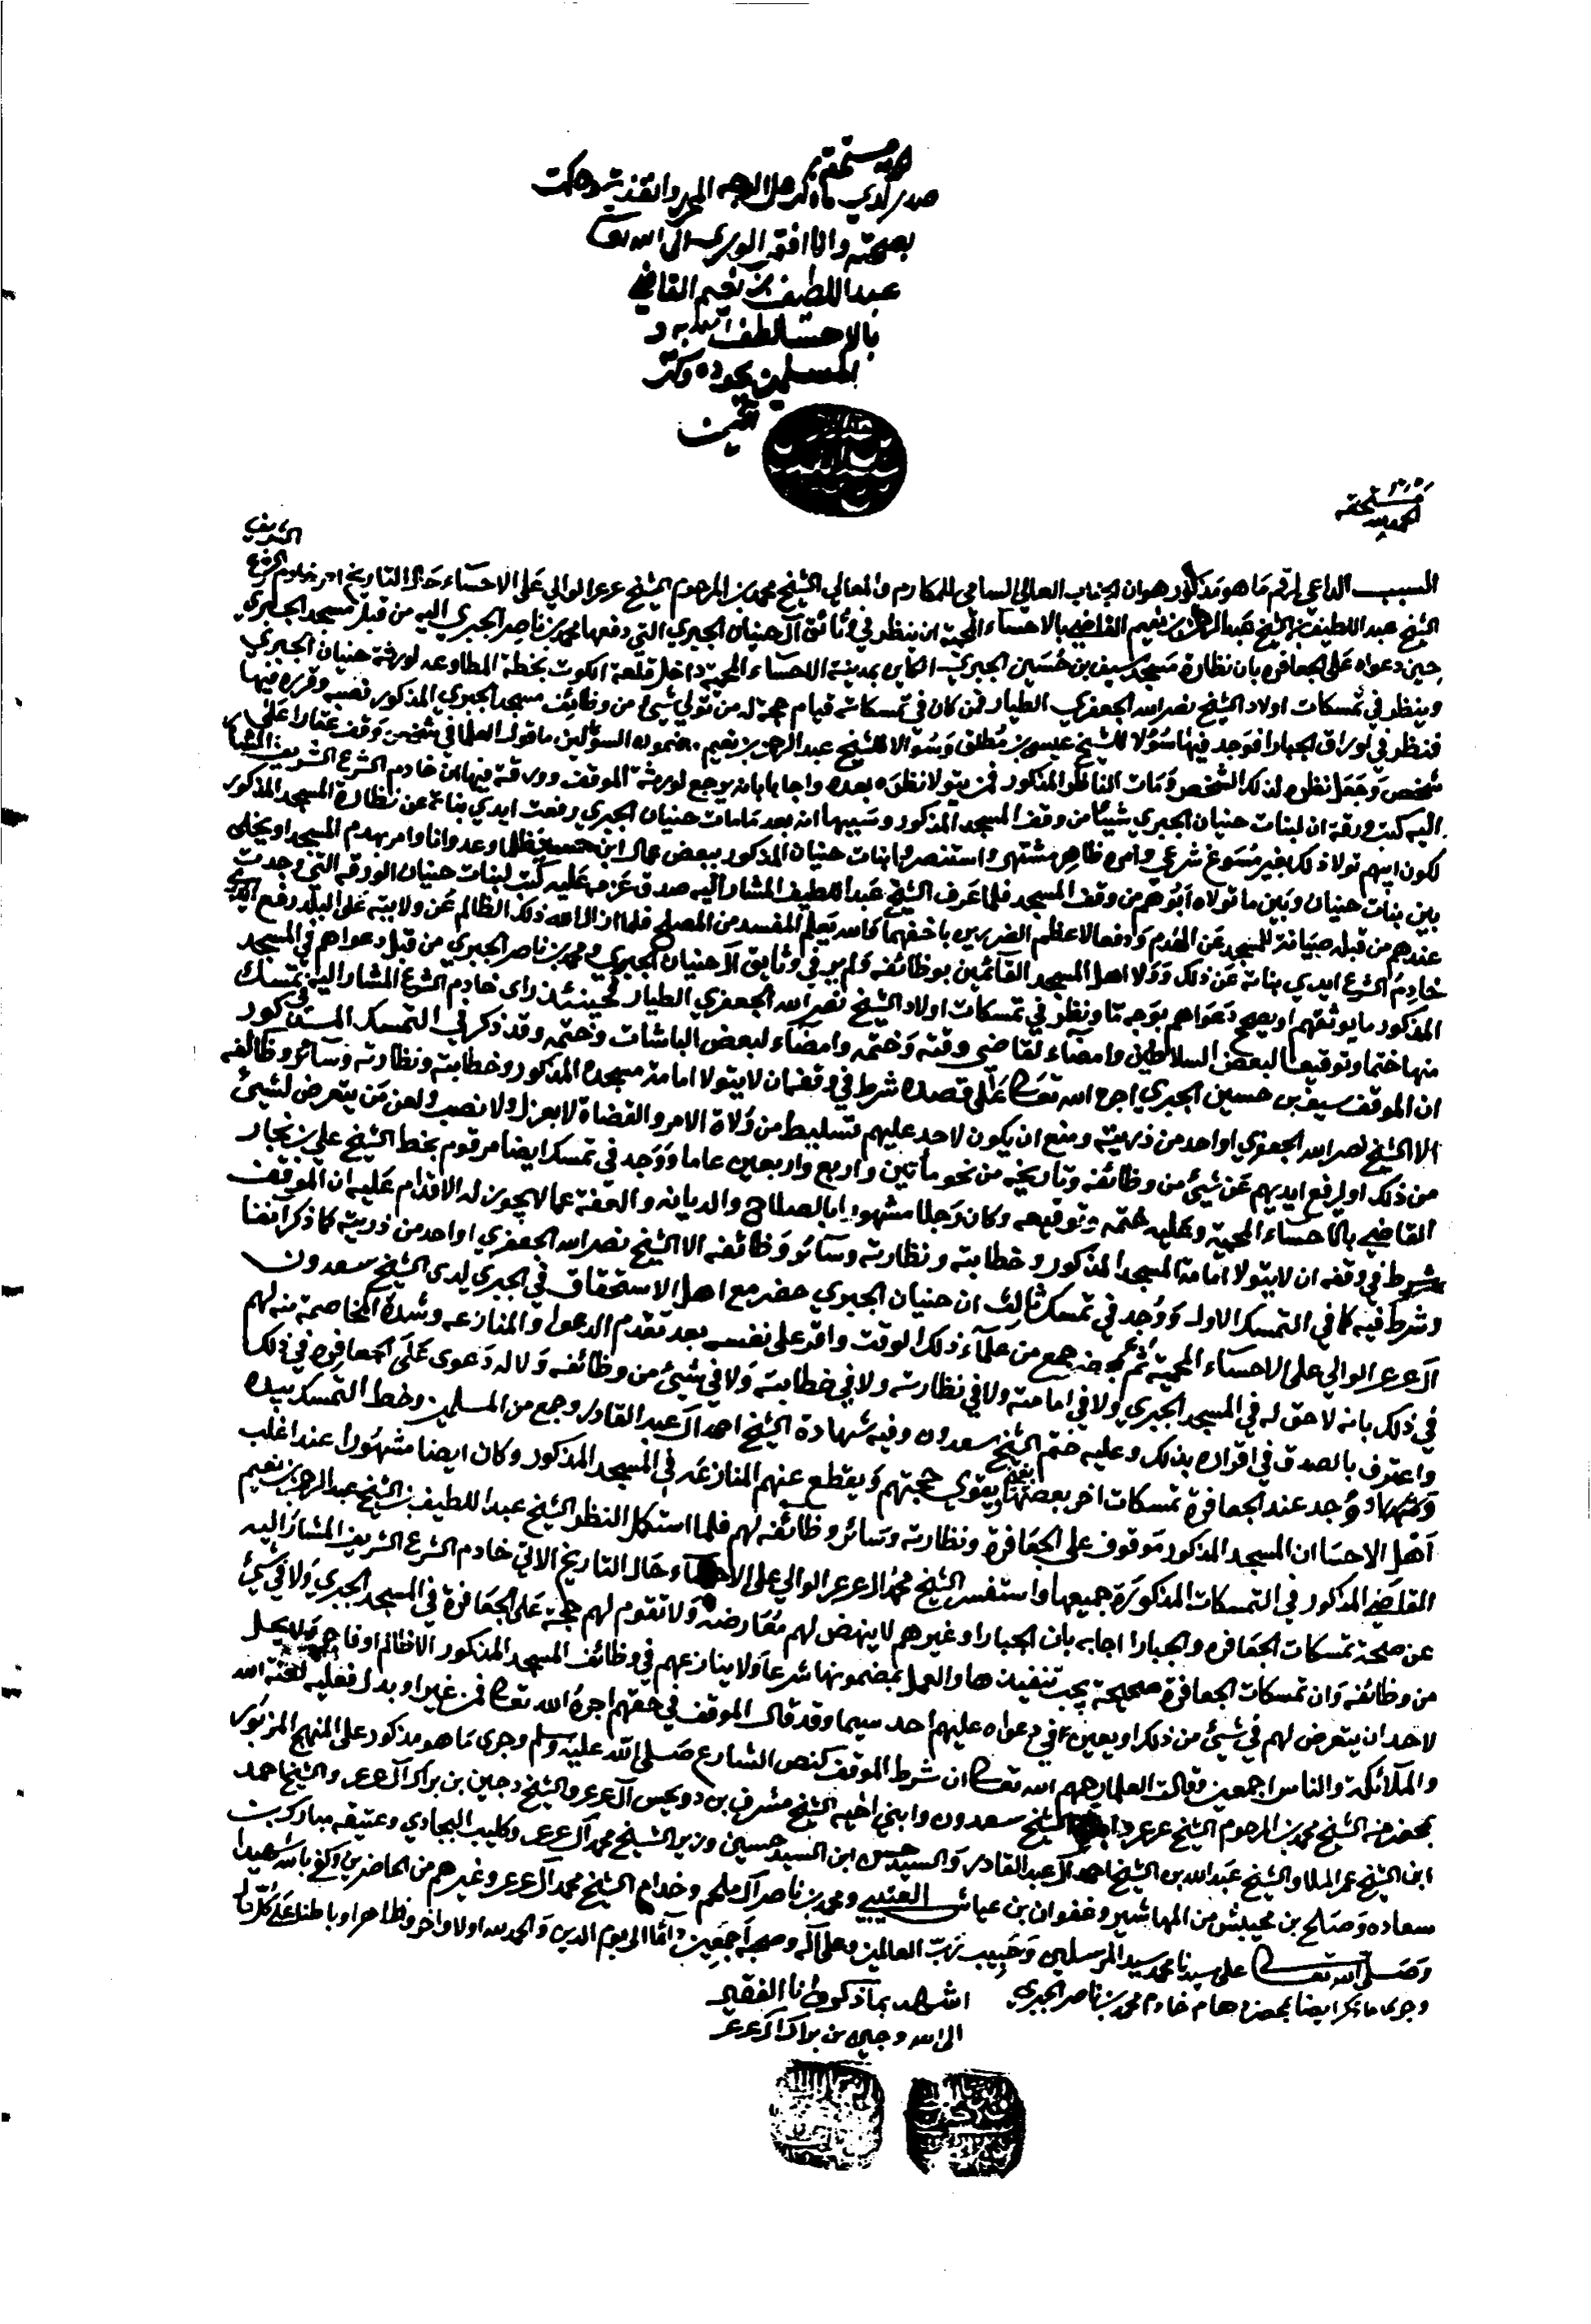 الحمد لله مستحقه
صدر لدي ما ذكر على الوجه المحرر وانفذته وحكمت
بصحته وانا افقر الورى الى الله تعالى
عبداللطيف بن نعيم القاضي
بالاحسا لطف الله به و
بالمسلمين بجوده وكرمه
امين
الحمد لله مستحقه
الشريف
السبب الداعي لرقم ما هو مذكور هو ان الجناب العالي السامي للمكارم والمعالي الشيخ محمد بن المرحوم الشيخ عرعر الوالي على الاحساء حال التاريخ امر خادم الشرع
الشيخ عبد اللطيف بن الشيخ عبد الرحمن بن نعيم القاضي بالاحساء المحمية ان ينظر في وثائق آل حنيان الجبري التي دفعها محمد بن ناصر الجبري اليه من قبل مسجد الجبري
حين دعواه على الجعافره بان نظارة مسجد سيف بن حسين الجبري الكاين بمدينة الاحساء المحمية داخل قلعة الكوت بخطة المطاوعه لورثة حنيان الجبري
وينظر في تمسكات اولاد الشيخ نصر الله الجعفري الطيار فمن كان في تمسكاته قيام حجة له من تولي شيئ من وظائف مسجد الجبري المذكور نصبه وقرره فيها
فنظر في اوراق الجبارا فوجد فيها سؤلا للشيخ عيسى بن مطلق وسؤالا للشيخ عبد الرحمن بن نعيم مضمونه السؤلين ما قول العلما في شخص وقف عقارا على
شخص وجعل نظره لذلك الشخص ومات الناظر المذكور فمن يتولا نظره بعده واجابا بانه يرجع لورثة الموقف وورقة فيها ان خادم الشرع الشريف المشار
اليه كتب ورقة ان لبنات حنيان الجبري شيئا من وقف المسجد المذكور وسببها انه بعد ما مات حنيان الجبري رفعت ايدي بناته عن نظارة المسجد المذكور
لكون ابيهم تولا ذلك بغير مسوغ شرعي وامره ظاهر مشتهر واستنصروا بنات حنيان المذكور ببعض عمال ابن ظلما وعدوانا وامر بهدم المسجد او يخلى
بين بنات حنيان وبين ما تولاه ابوهم من وقف المسجد فلما عرف الشيخ عبد اللطيف المشار اليه صدق عزمه عليه كتب لبنات حنيان الورقه التي وجدت
عندهم من قبله صيانة للمسجد عن الهدم ودفعا لاعظم الضررين باخفهما والله يعلم المفسد من المصلح فلما ازال الله ذلك الظالم عن ولايته على البلد رفع
خادم الشرع ايدي بناته عن ذلك وولا اهل المسجد القائمين بوظائفه ولم ير في وثايق آل حنيان الجبري ومحمد بن ناصر الجبري من قبل دعواهم في المسجد
المذكور ما يوثقهم او يصحح دعواهم بوجه ما ونظر في تمسكات اولاد الشيخ نصر الله الجعفري الطيار فحينئذ راى خادم الشرع المشار اليه في تمسك
منها ختما وتوقيعا لبعض السلاطين وامضاء لقاضي وقته وختمه وامضاء لبعض الباشات وختمه وقد ذكر في التمسك المذكور
ان الموقف سيف بن حسين الجبري اجره الله تعالى على قصده شرط في وقفه ان لا يتولا امامة مسجده المذكور وخطابته ونظارته وسائر وظائفه
الا الشيخ نصر الله الجعفري او احد من ذريته ومنع ان يكون لاحد عليهم تسليط من ولاة الامر والقضاة لا بعزل ولا نصب ولعن من يتعرض لشيئ
من ذلك او لرفع ايديهم عن شيئ من وظائفه وتاريخه من نحو مأتين واربع واربعين عاما ووجد في تمسك ايضا مرقوم بخط الشيخ علي بن نجار
القاضي بالاحساء المحمية وعليه ختمه وتوقيعه وكان رجلا مشهورا بالصلاح والديانه والعفة عما لا يجوز له الاقدام عليه ان الموقف
شرط في وقفه ان لا يتولا امامة المسجد المذكور وخطابته ونظارته وسائر وظائفه الا الشيخ نصر الله الجعفري او احد من ذريته كما ذكر آنفا
وشرط فيه كما في التمسك الاول ووجد في تمسك ثالث ان حنيان الجبري حضر مع اهل الاستحقاق في الجبري لدى الشيخ سعدون
آل عرعر الوالي على الاحساء المحمية ثم بمحضر جمع من علماء ذلك الوقت واقر على نفسه بعد تقدم الدعوا والمنازعه وشدة المخاصمة منه لهم
في ذلك بانه لا حق له في المسجد الجبري ولا في امامته ولا في نظارته ولا في خطابته ولا في شيئ من وظائفه ولا له دعوى على الجعافره في ذلك
واعترف بالصدق في اقراره بذلك وعليه ختم الشيخ سعدون وفيه شهادة الشيخ احمد آل عبد القادر وجمع من المسلمين وخط التمسك بيده
وشهد ووجد عند الجعافرة تمسكات اخر بعضها يقوي حجتهم ويقطع عنهم المنازعه في المسجد المذكور وكان ايضا مشهورا عند اغلب
اهل الاحسا ان المسجد المذكور موقوف على الجعافرة ونظارته وسائر وظائفه لهم فلما استكمل النظر الشيخ عبد اللطيف بن الشيخ عبد الرحمن بن نعيم
القاضي المذكور في التمسكات المذكورة جميعها واستفسر الشيخ محمد آل عرعر الوالي على الاحساء حال التاريخ الاتي خادم الشرع الشريف المشار اليه
عن صحة تمسكات الجعافره والجبارا اجابه بان الجبارا وغيرهم لا ينهض لهم معارضه ولا تقوم لهم حجة على الجعافرة في المسجد الجبري ولا في شيئ
من وظائفه وان تمسكات الجعافرة صحيحة يجب تنفيذها والعمل بمضمونها شرعا ولا ينازعهم في وظائف المسجد المذكور الا ظالم او فاجر ولا يحل
لاحد ان يتعرض لهم في شيئ من ذلك او يعين في دعواه عليهم احد سيما وقد قال الموقف في حقهم اجره الله تعالى فمن غير او بدل فعليه لعنة الله
والملائكة والناس اجمعين وقالت العلما رحمهم الله تعالى ان شرط الموقف كنص الشارع صلى الله عليه وسلم وجرى ما هو مذكور على المنهج المزبور
بمحضر من الشيخ محمد بن المرحوم الشيخ عرعر الشيخ سعدون وابني اخيه الشيخ مشرف بن دويحس آل عرعر والشيخ دجين بن براك آل عرعر والشيخ احمد
ابن الشيخ عمر الملا والشيخ عبد الله بن الشيخ احمد آل عبد القادر والسيد حسن ابن السيد حسين وزير الشيخ محمد آل عرعر وكليب البجادي وعتيقه مبارك بن
سعاده وصالح بن محيبش من المهاشير وغفوان بن عياش العتيبي ومحمد بن ناصر آل ملحم وخدام الشيخ محمد آل عرعر وغيرهم من الحاضرين وكفى بالله شهيدا
وصلى الله تعالى على سيدنا محمد سيد المرسلين وحبيب رب العالمين وعلى آله وصحبه اجمعين دائما الى يوم الدين والحمد لله اولا واخر وظاهرا وباطنا على كل حال
وجرى ما ذكر ايضا بمحضر هام خادم محمد بن ناصر الجبري
اشهد بما ذكر وانا الفقير
الى الله دجين بن براك آل عرعر